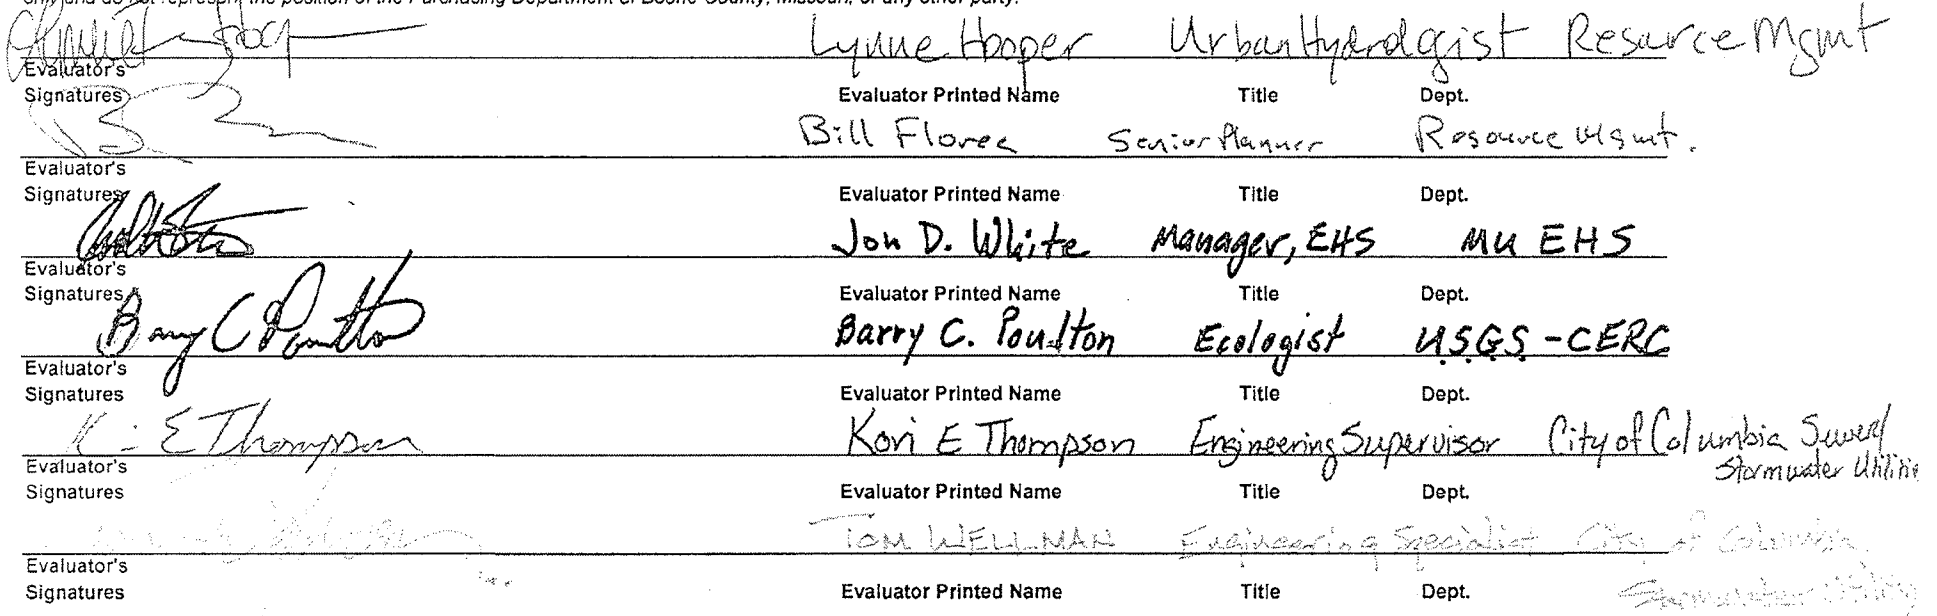 only and do not represent the position of the Purchasing Department of Boone County, Missouri, or any other party.
Lynne Hooper Urban Hydrologist Resource Mgmt
Evaluator's
Signatures Evaluator Printed Name Title Dept.
Bill Florea Senior Planner Resource Mgmt.
Evaluator's
Signatures Evaluator Printed Name Title Dept.
Jon D. White Manager, EHS MU EHS
Evaluator's
Signatures Evaluator Printed Name Title Dept.
Barry C Poulton Barry C. Poulton Ecologist U.S.G.S. - CERC
Evaluator's
Signatures Evaluator Printed Name Title Dept.
K E Thompson Kori E Thompson Engineering Supervisor City of Columbia Sewer/
Stormwater Utilitie
Evaluator's
Signatures Evaluator Printed Name Title Dept.
TOM WELLMAN Engineering Specialist City of Columbia
Stormwater Utility
Evaluator's
Signatures Evaluator Printed Name Title Dept.